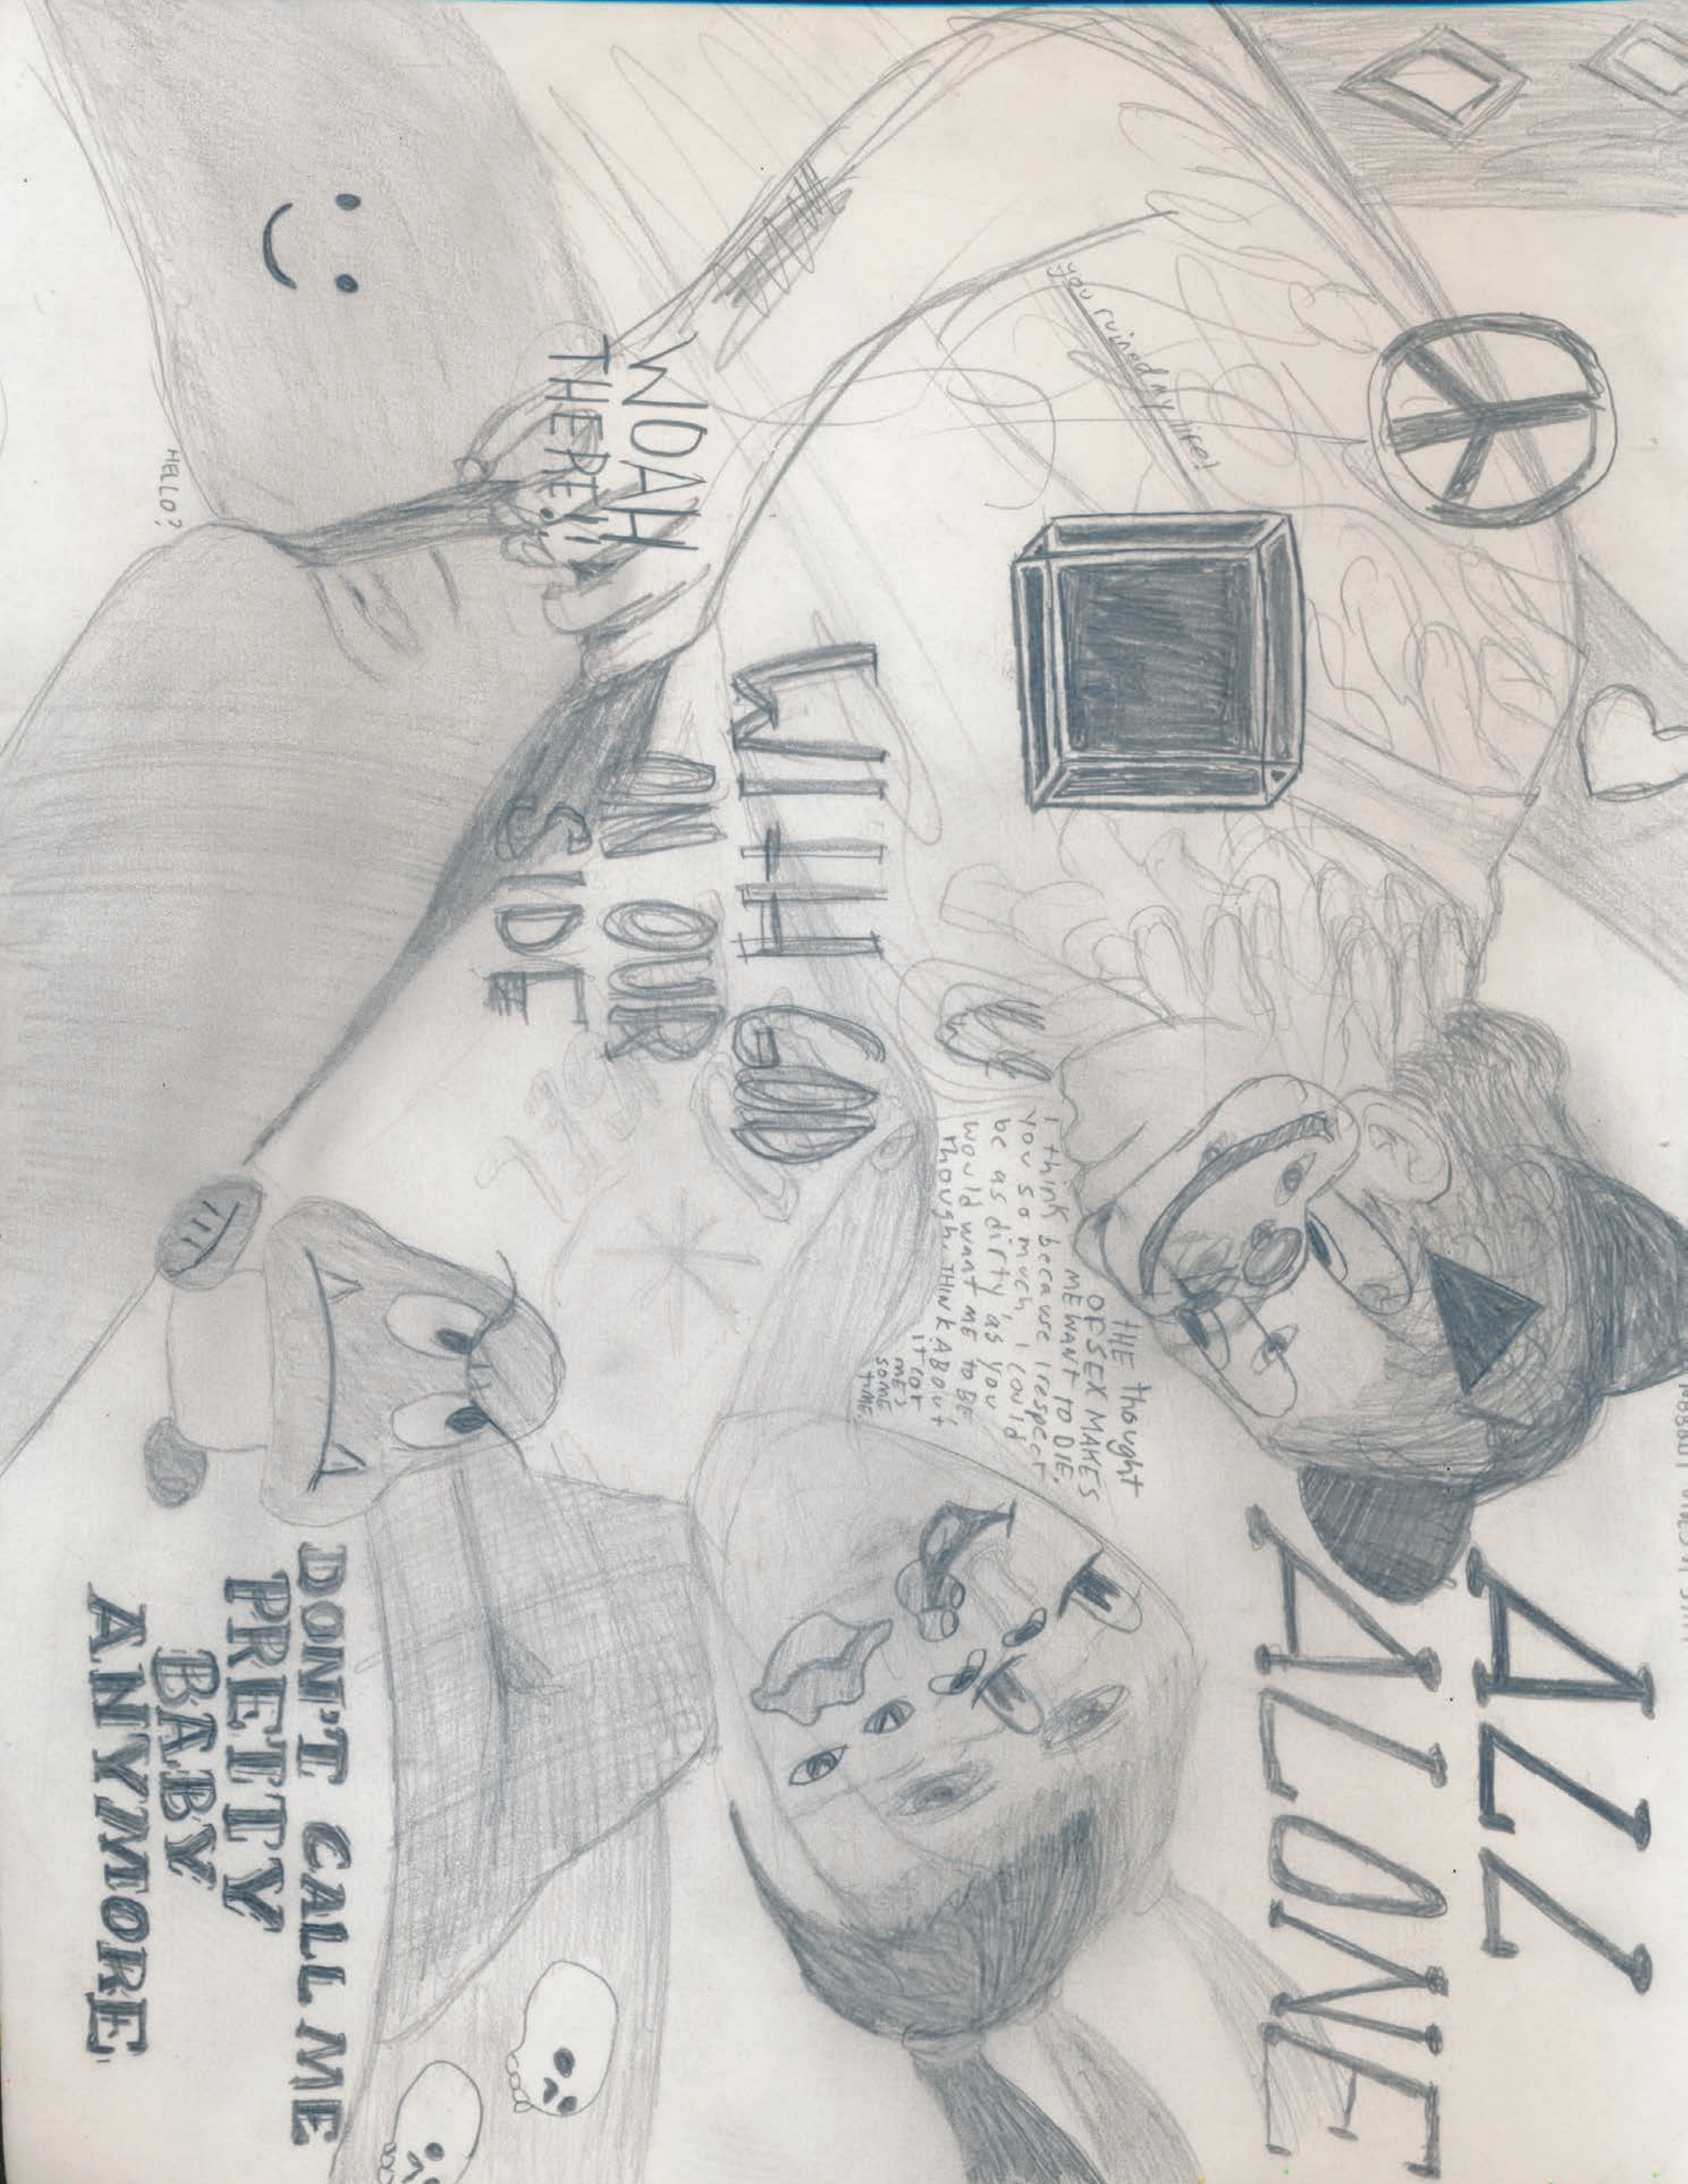 ALL
ALONE
you ruined my life!
THE thought
OF SEX MAKES
ME WANT TO DIE.
I think because I respect
you so much, I could
be as dirty as you
would want ME to BE,
though. THINK ABOUT
it (or
me)
some
TIME.
WITH GOD
ON OUR
SIDE
WOAH
THERE!
HELLO?
DON'T CALL ME
PRETTY
BABY
ANYMORE